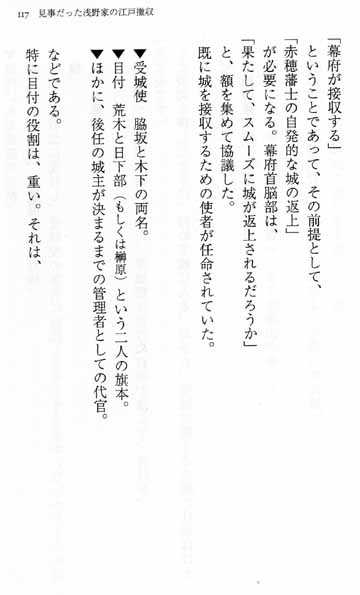 117 見事だった浅野家の江戸撤収
「幕府が接収する」
ということであって、その前提として、
「赤穂藩士の自発的な城の返上」
が必要になる。幕府首脳部は、
「果たして、スムーズに城が返上されるだろうか」
と、額を集めて協議した。
既に城を接収するための使者が任命されていた。
▼受城使 脇坂と木下の両名。
▼目付 荒木と日下部（もしくは榊原）という二人の旗本。
▼ほかに、後任の城主が決まるまでの管理者としての代官。
などである。
特に目付の役割は、重い。それは、